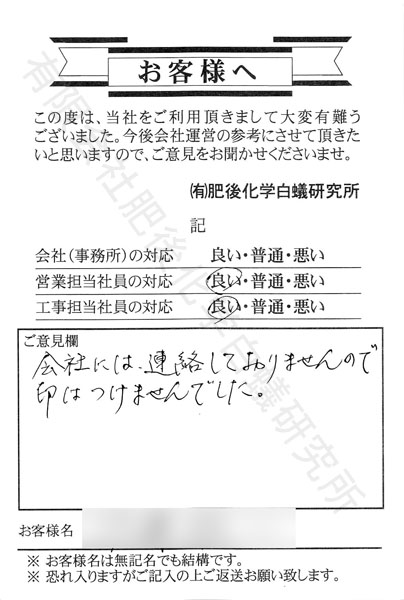 お客様へ
この度は、当社をご利用頂きまして大変有難う
ございました。今後会社運営の参考にさせて頂きた
いと思いますので、ご意見をお聞かせくださいませ。
㈲肥後化学白蟻研究所
記
会社(事務所)の対応 良い・普通・悪い
営業担当社員の対応 良い・普通・悪い
工事担当社員の対応 良い・普通・悪い
ご意見欄
会社には、連絡しておりませんので
印はつけませんでした。
お客様名
※ お客様名は無記名でも結構です。
※ 恐れ入りますがご記入の上ご返送お願い致します。
有限会社肥後化学白蟻研究所